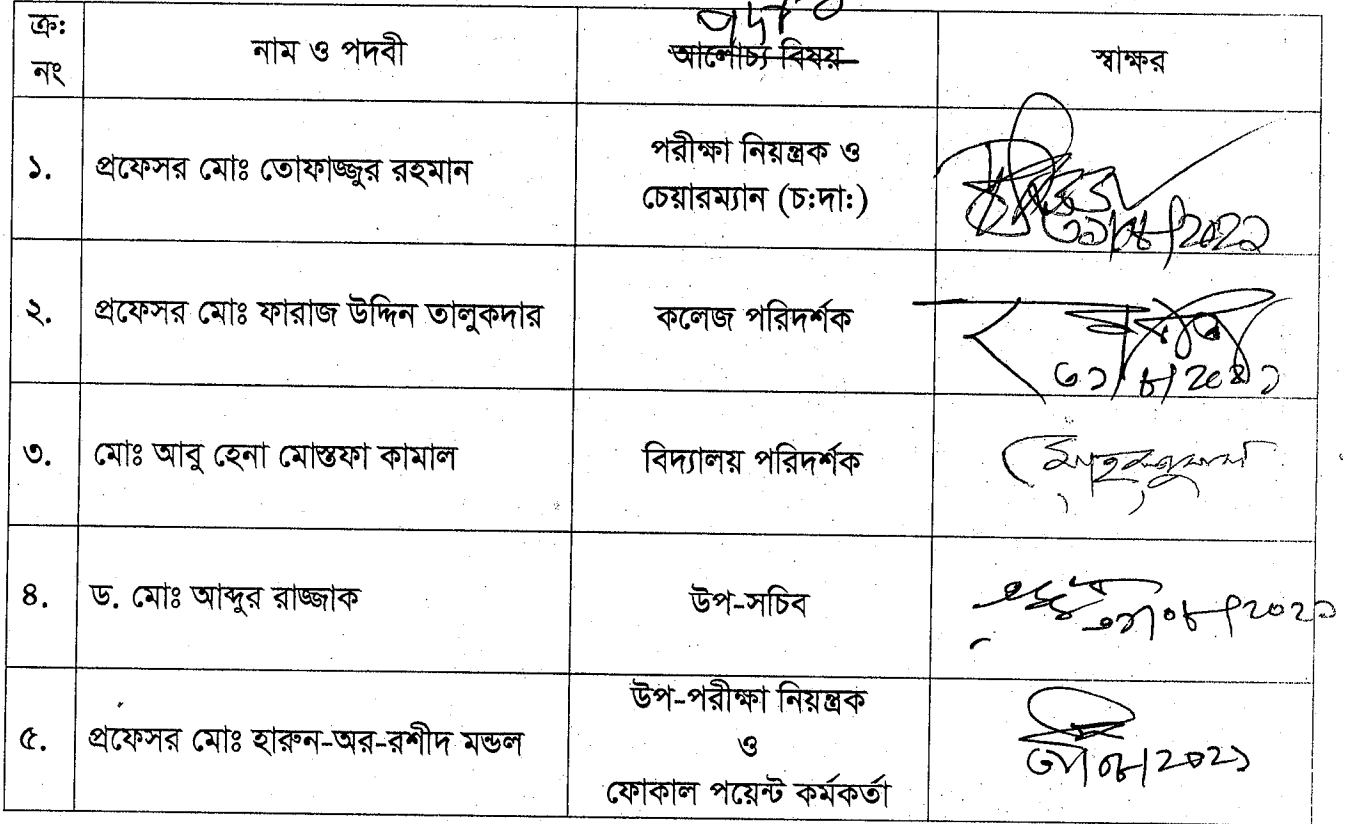 ক্র: নং নাম ও পদবী পদবী আলোচ্য বিষয় স্বাক্ষর
১. প্রফেসর মোঃ তোফাজ্জুর রহমান পরীক্ষা নিয়ন্ত্রক ও
চেয়ারম্যান (চ:দা:)
২. প্রফেসর মোঃ ফারাজ উদ্দিন তালুকদার কলেজ পরিদর্শক
৩. মোঃ আবু হেনা মোস্তফা কামাল বিদ্যালয় পরিদর্শক
৪. ড. মোঃ আব্দুর রাজ্জাক উপ-সচিব
৫. প্রফেসর মোঃ হারুন-অর-রশীদ মন্ডল উপ-পরীক্ষা নিয়ন্ত্রক
ও
ফোকাল পয়েন্ট কর্মকর্তা